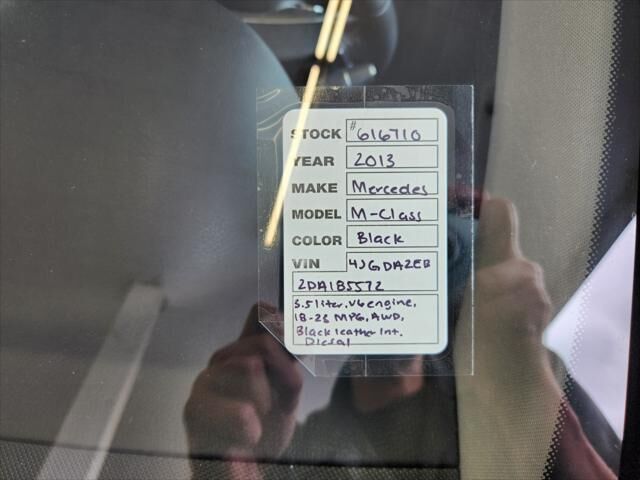 STOCK #616710
YEAR 2013
MAKE Mercedes
MODEL M-Class
COLOR Black
VIN 4JGDA2EB
2DA185572
3.5 liter, V6 engine,
18-23 MPG, AWD,
Black leather Int.
Diesal